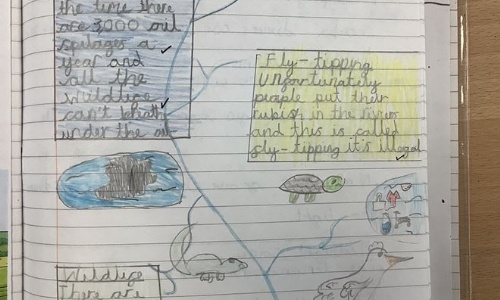 the time there
are 3000 oil
spilages a
year and
all the
wildlife
can't breath
under the oil
Fly-tipping
Unfortunately
people put their
rubish in the rivers
and this is called
fly-tipping it's illegal
Wildlife
There are